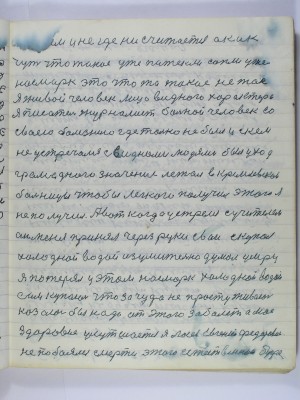 ми не где не считается а как
чуть что такое уже патеньте сами уже
насмарк это что то такое не так
я живой человек лицо видного характера
я писатель журналист больной человек со
своего болезнью где только не был и с кем
не встречался с видными людями был уход
гражданого значения лежал в Кремлевской
больнице чтобы легкого получил этого я
не получил. А вот когда устроил с учителем
он меня принял через руки свои скупал
холодной водой изумительно думал умру
я потерял у этом насморк холодной водой
купаюсь что за чудо не простуживает
надо от этого заболеть а мое
здоровие улучшается я Лосев Евгений Федорови
не побоялся смерти этого